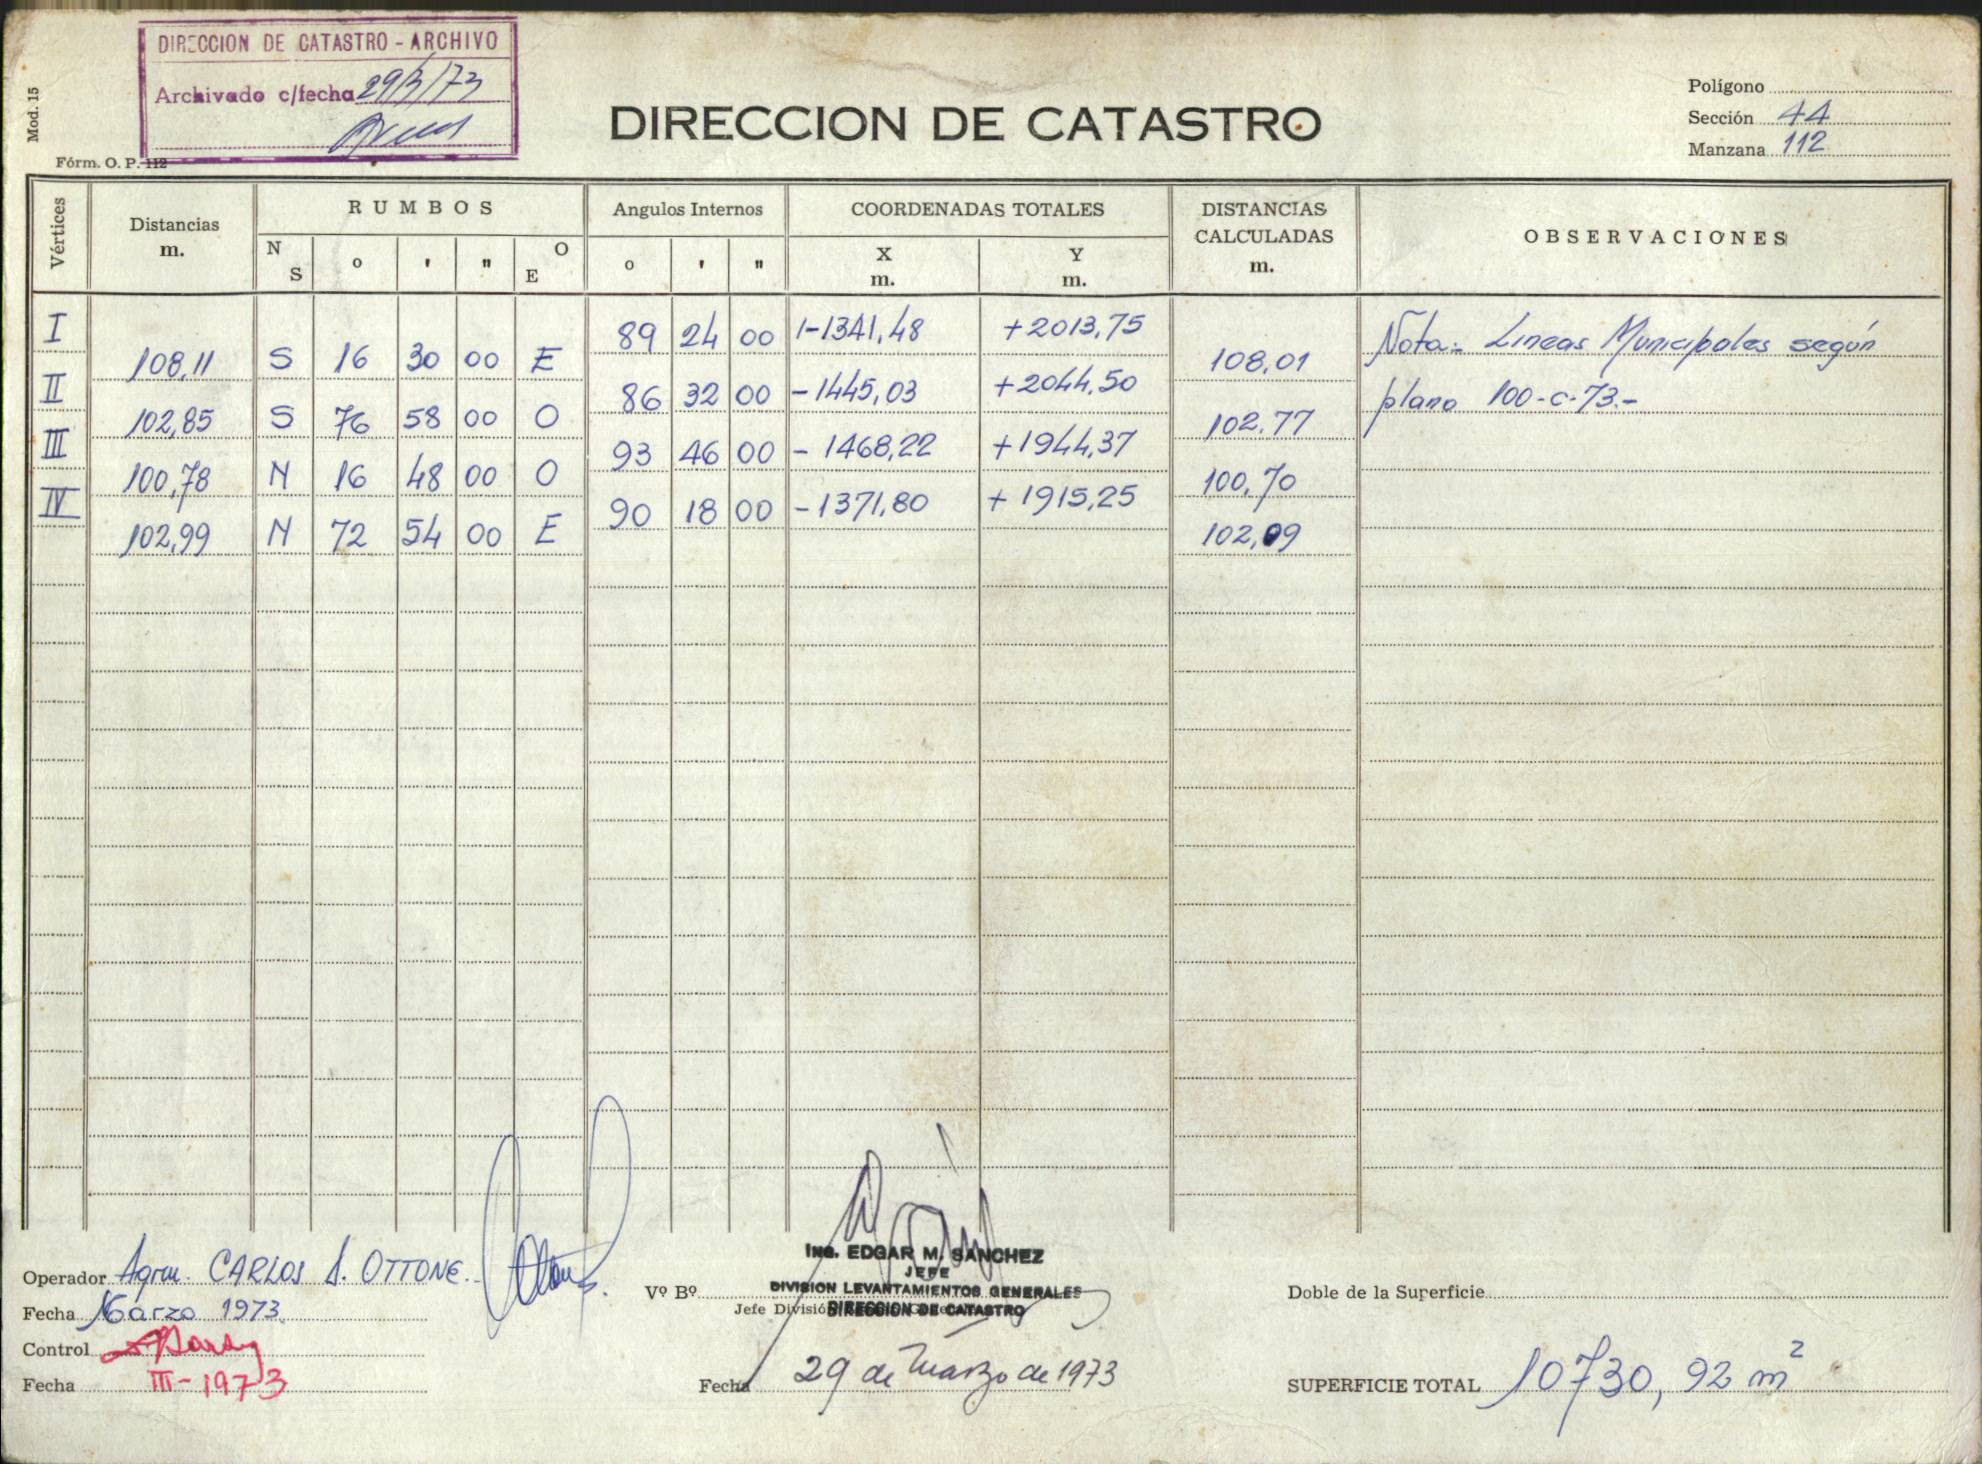 DIRECCION DE CATASTRO - ARCHIVO
Archivado c/fecha 29/3/73
Mod. 15
Fórm. O. P. 112
DIRECCION DE CATASTRO
Polígono
Sección 44
Manzana 112
Vértices
Distancias
m.
RUMBOS
N S ° ' " O E
Angulos Internos
° ' "
COORDENADAS TOTALES
X
m.
Y
m.
DISTANCIAS
CALCULADAS
m.
OBSERVACIONES
I 89 24 00 -1341,48 +2013,75
108,11 S 16 30 00 E 108,01 Nota:- Lineas Municipales según
II 86 32 00 -1445,03 +2044,50
102,85 S 76 58 00 O 102.77 plano 100-c-73.-
III 93 46 00 - 1468,22 +1944,37
100,78 N 16 48 00 O 100,70
IV 90 18 00 -1371,80 + 1915,25
102,99 N 72 54 00 E 102,09
Operador Agrm. CARLOS A. OTTONE.
Fecha Marzo 1973
Control
Fecha III-1973
Vº Bº
ING. EDGAR M. SANCHEZ
JEFE
DIVISION LEVANTAMIENTOS GENERALES
Jefe División
DIRECCION DE CATASTRO
Fecha 29 de Marzo de 1973
Doble de la Superficie
SUPERFICIE TOTAL 10730,92 m²